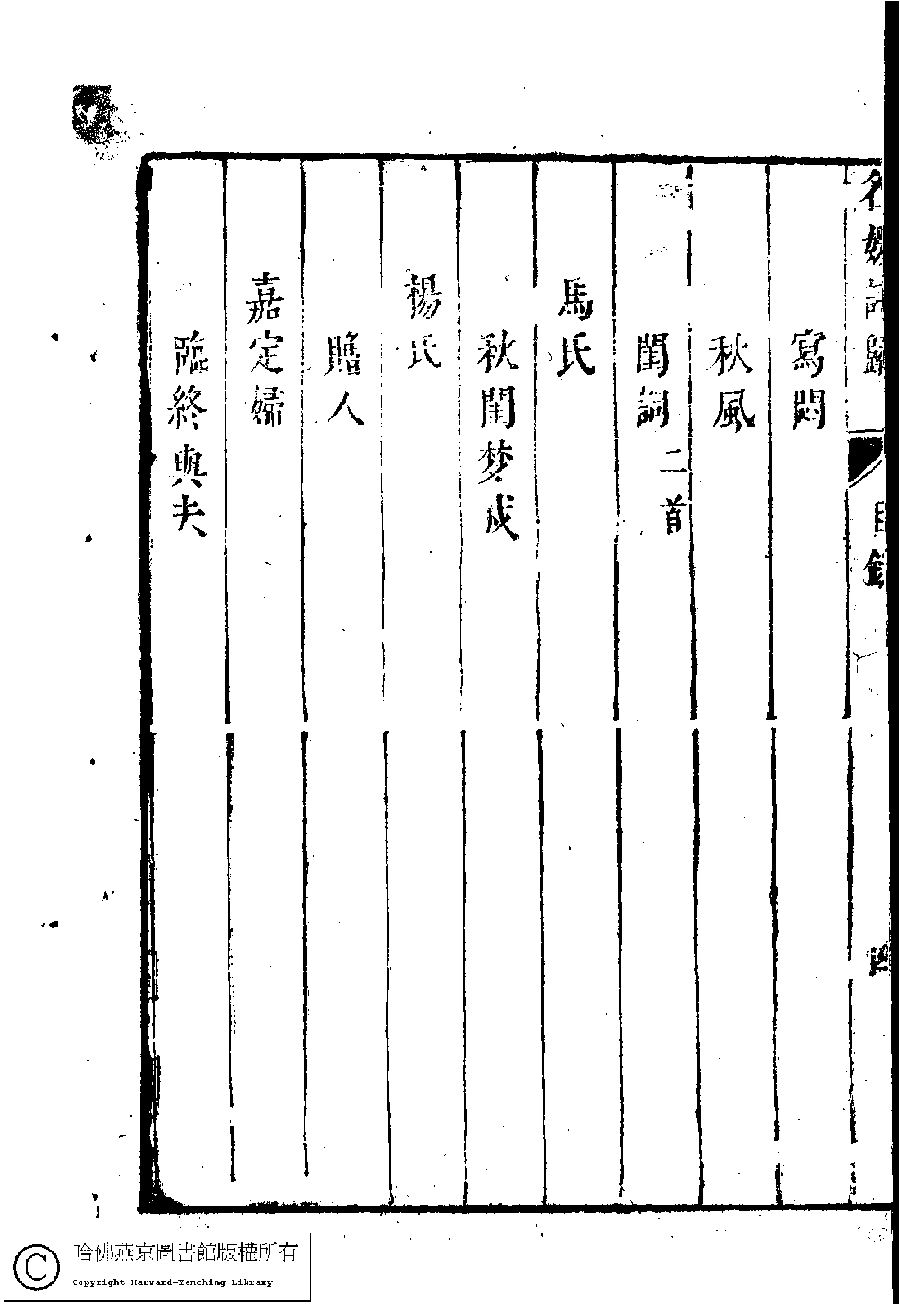 名媛詩歸
目錄
四
寫悶
秋風
閨詞 二首
馬氏
秋閨夢成
楊氏
贈人
嘉定婦
臨終與夫
哈佛燕京圖書館版權所有
Copyright Harvard-Yenching Library